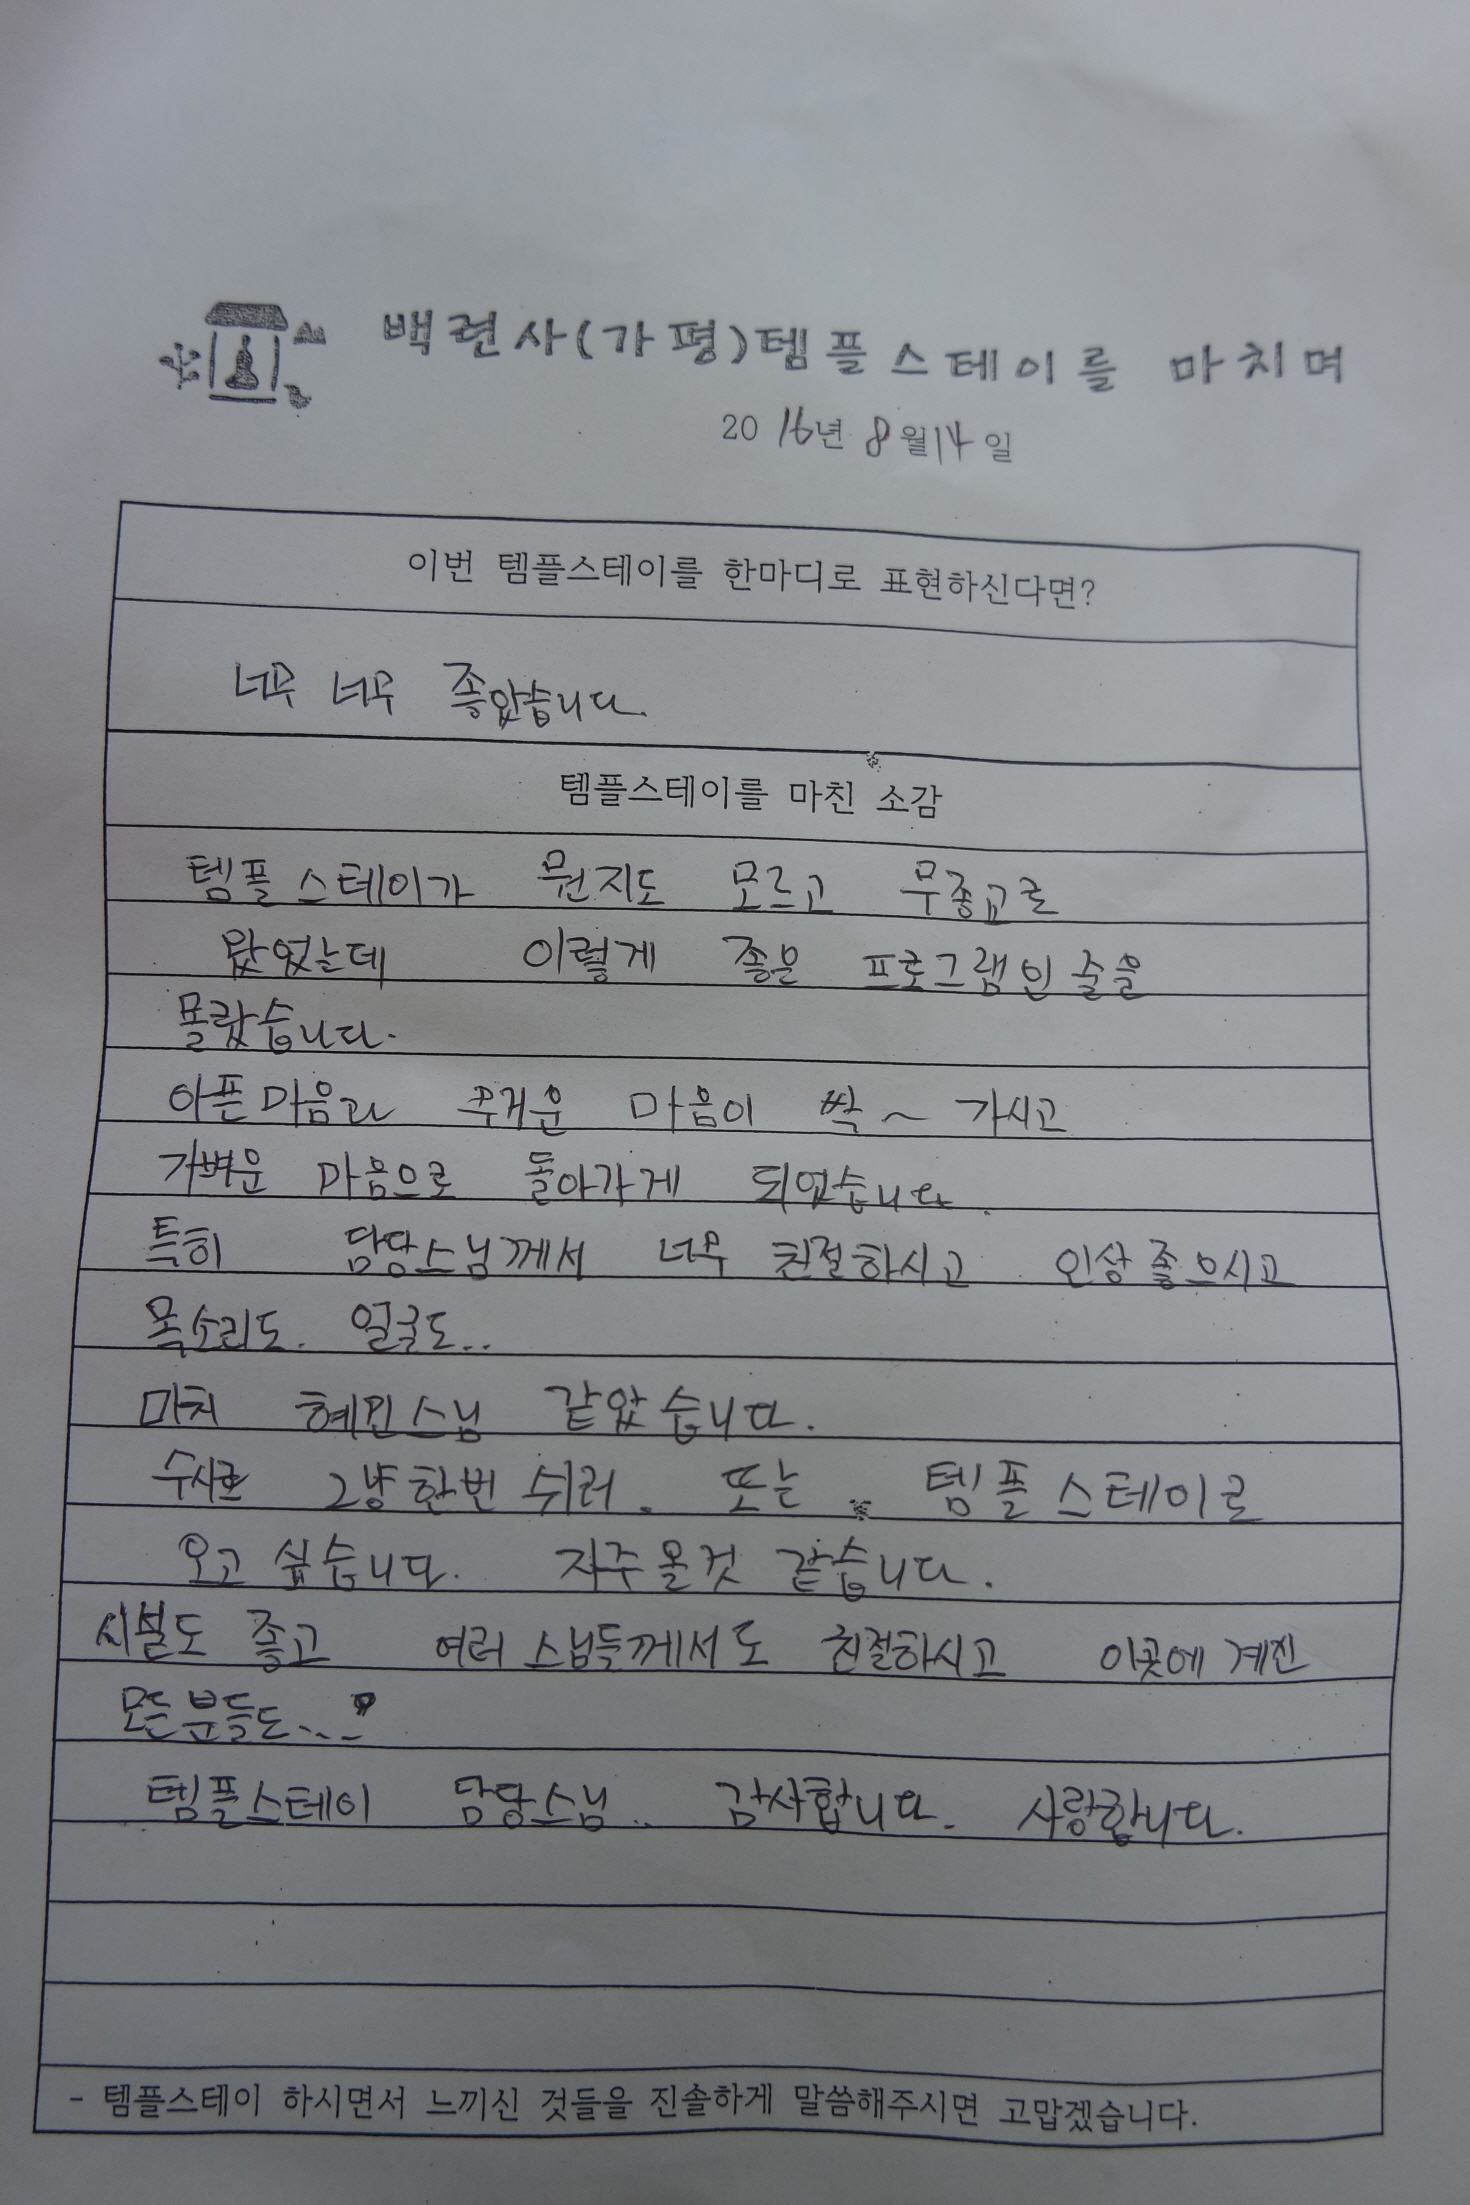 백련사(가평)템플스테이를 마치며
2016년 8월14일
이번 템플스테이를 한마디로 표현하신다면?
너무 너무 좋았습니다.
템플스테이를 마친 소감
템플스테이가 뭔지도 모르고 무종교로
왔었는데 이렇게 좋은 프로그램인 줄을
몰랐습니다.
아픈마음과 무거운 마음이 싹~ 가시고
가벼운 마음으로 돌아가게 되었습니다.
특히 담당스님께서 너무 친절하시고 인상좋으시고
목소리도. 얼굴도..
마치 혜민스님 같았습니다.
수시로 그냥한번 쉬러. 또는 템플스테이로
오고 싶습니다. 자주올것 같습니다.
시설도 좋고 여러 스님들께서도 친절하시고 이곳에 계진
모든분들도...
템플스테이 담당스님.. 감사합니다. 사랑합니다.
- 템플스테이 하시면서 느끼신 것들을 진솔하게 말씀해주시면 고맙겠습니다.